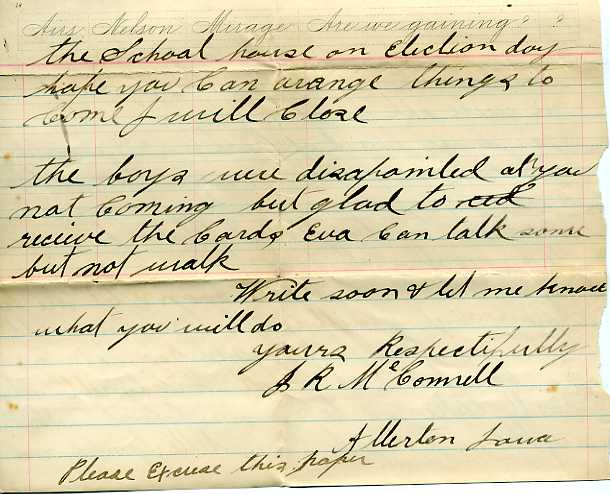 Airs, Nelson Mirage. Are we gaining? "
the School house on Election day
hope you Can arange things to
Come I will Close
the boys were disapointed at you
not Coming but glad to
recieve the Cards Eva Can talk some
but not walk
Write soon & let me know
what you will do
yours Respectifully
J R McConnell
Allerton Iowa
Please Excuse this paper